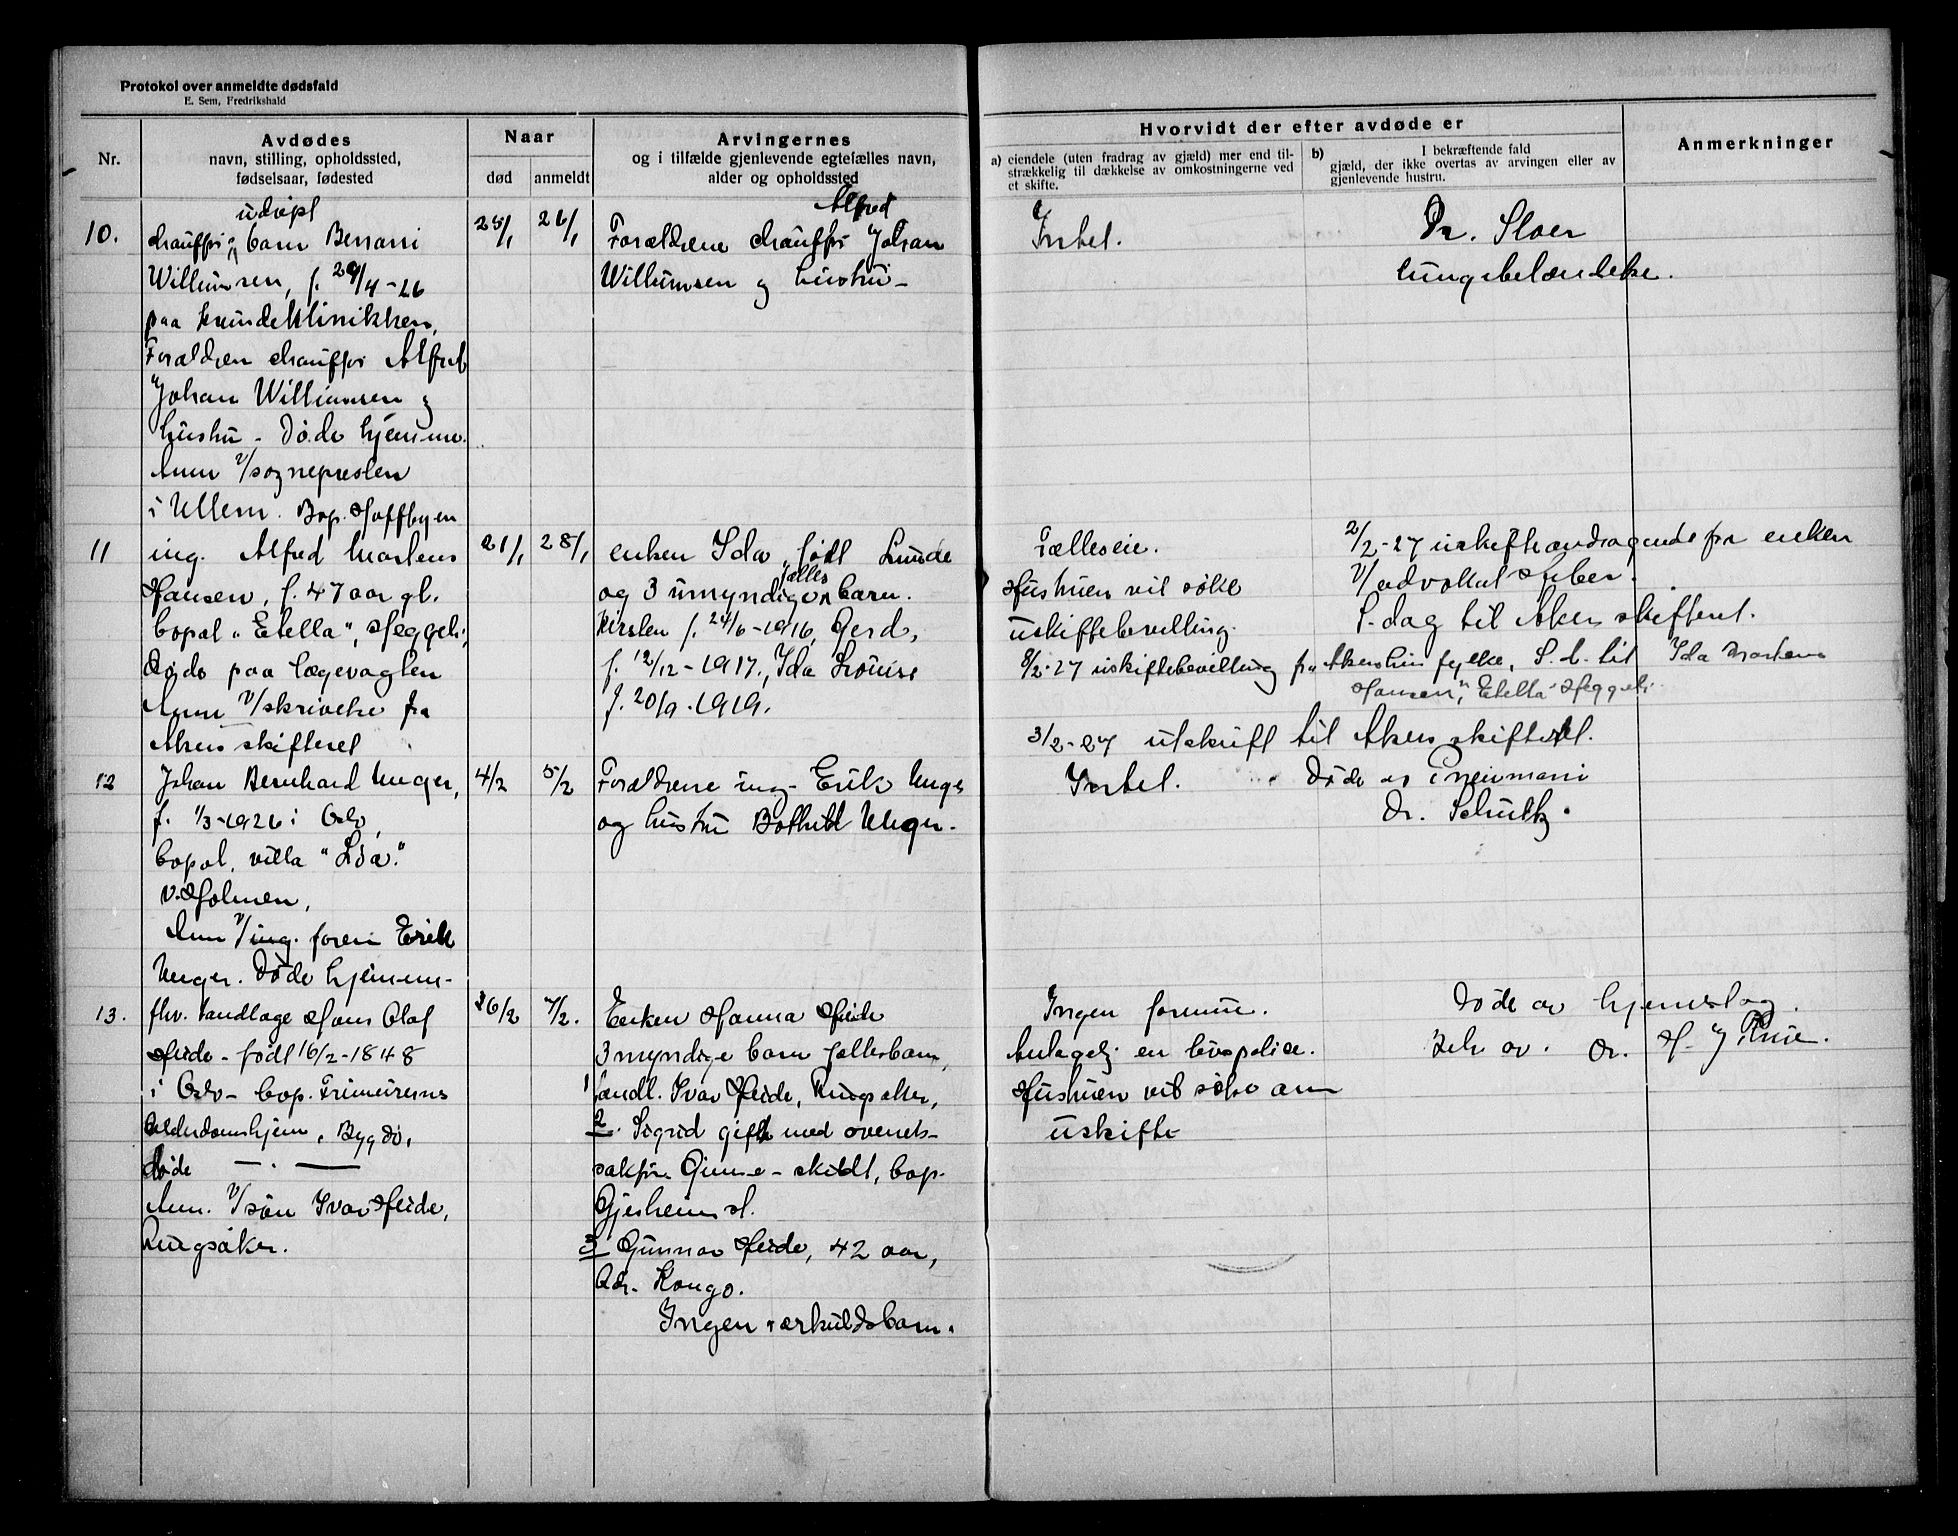 Protokol over anmeldte dødsfald
E. Sem, Fredrikshald
Nr.
Avdødes
navn, stilling, opholdssted,
fødselsaar, fødested
Naar
død
anmeldt
Arvingernes
og i tilfælde gjenlevende egtefælles navn,
alder og opholdssted
Hvorvidt der efter avdøde er
a) eiendele (uten fradrag av gjæld) mer end til-
strækkelig til dækkelse av omkostningerne ved
et skifte.
b) I bekræftende fald
gjæld, der ikke overtas av arvingen eller av
gjenlevende hustru.
Anmerkninger
10.
udøpt
chauffør barn
Willumsen, f. 29/4-26
paa kvindeklinikken,
Forældren chauffør Alfred
Johan Willumsen og
hustru - Døde hjemme.
Anm v/sognepresten
i Ullern. Bop. Hoffbyen
25/1
26/1
Alfred
Forældrene chauffør Johan
Willumsen og hustru -
Intet.
Dr.
lungebetændelse.
11
ing. Alfred Martens
Hansen, f. 47 aar gl.
bopæl "Etella", Heggeli,
Døde paa lægevagten
Anm v/skrivelse fra
Akers skifteret
21/1
28/1
enken Ida født Lunde
fælles
og 3 umyndige barn.
Kirsten f. 24/6-1916, Gerd,
f. 12/12-1917., Ida Louise
f. 20/9-1919.
Fælleseie.
Hustruen vil søke
uskiftebevilling.
2/2-27 uskifteandragende fra enken
v/advokat
S. dag til Aker skifteret.
8/2-27 uskiftebevilling fra Akershus fylke, S. d. til Ida Martens
Hansen, "Etella" Heggeli.
3/2-27 utskrift til Aker skifteret.
12
Johan Bernhard Unger,
f. 1/3-1926 i Oslo,
bopæl, villa "Lia".
v. Holmen,
Anm v/ing. foren Erik
Unger. Døde hjemme-
4/2
5/2
Forældrene ing. Erik Unger
og hustru Bothild Unger.
Intet.
Døde av Pneumoni
Dr. Schultz.
13.
fhv. landlage Hans Olaf
Heide - født 16/2-1848
i Oslo - bop. Frimurernes
Alderdomshjem, Bygdø,
døde — . —
Anm. v/søn Ivar Heide,
Ringsaker.
6/2
7/2.
Enken Hanna Heide
3 myndige barn fællesbarn,
1 landl. Ivar Heide, Ringsaker,
2. Sigrid gift med overrets-
sakfører - skildt, bop.
3 Gunnar Heide, 42 aar,
Adr. Kongo.
Ingen særkuldsbarn.
Ingen formue.
Antagelig en livspolice.
Hustruen vil søke om
uskifte
Døde av hjerneslag.
Beh av. Dr. H. J.